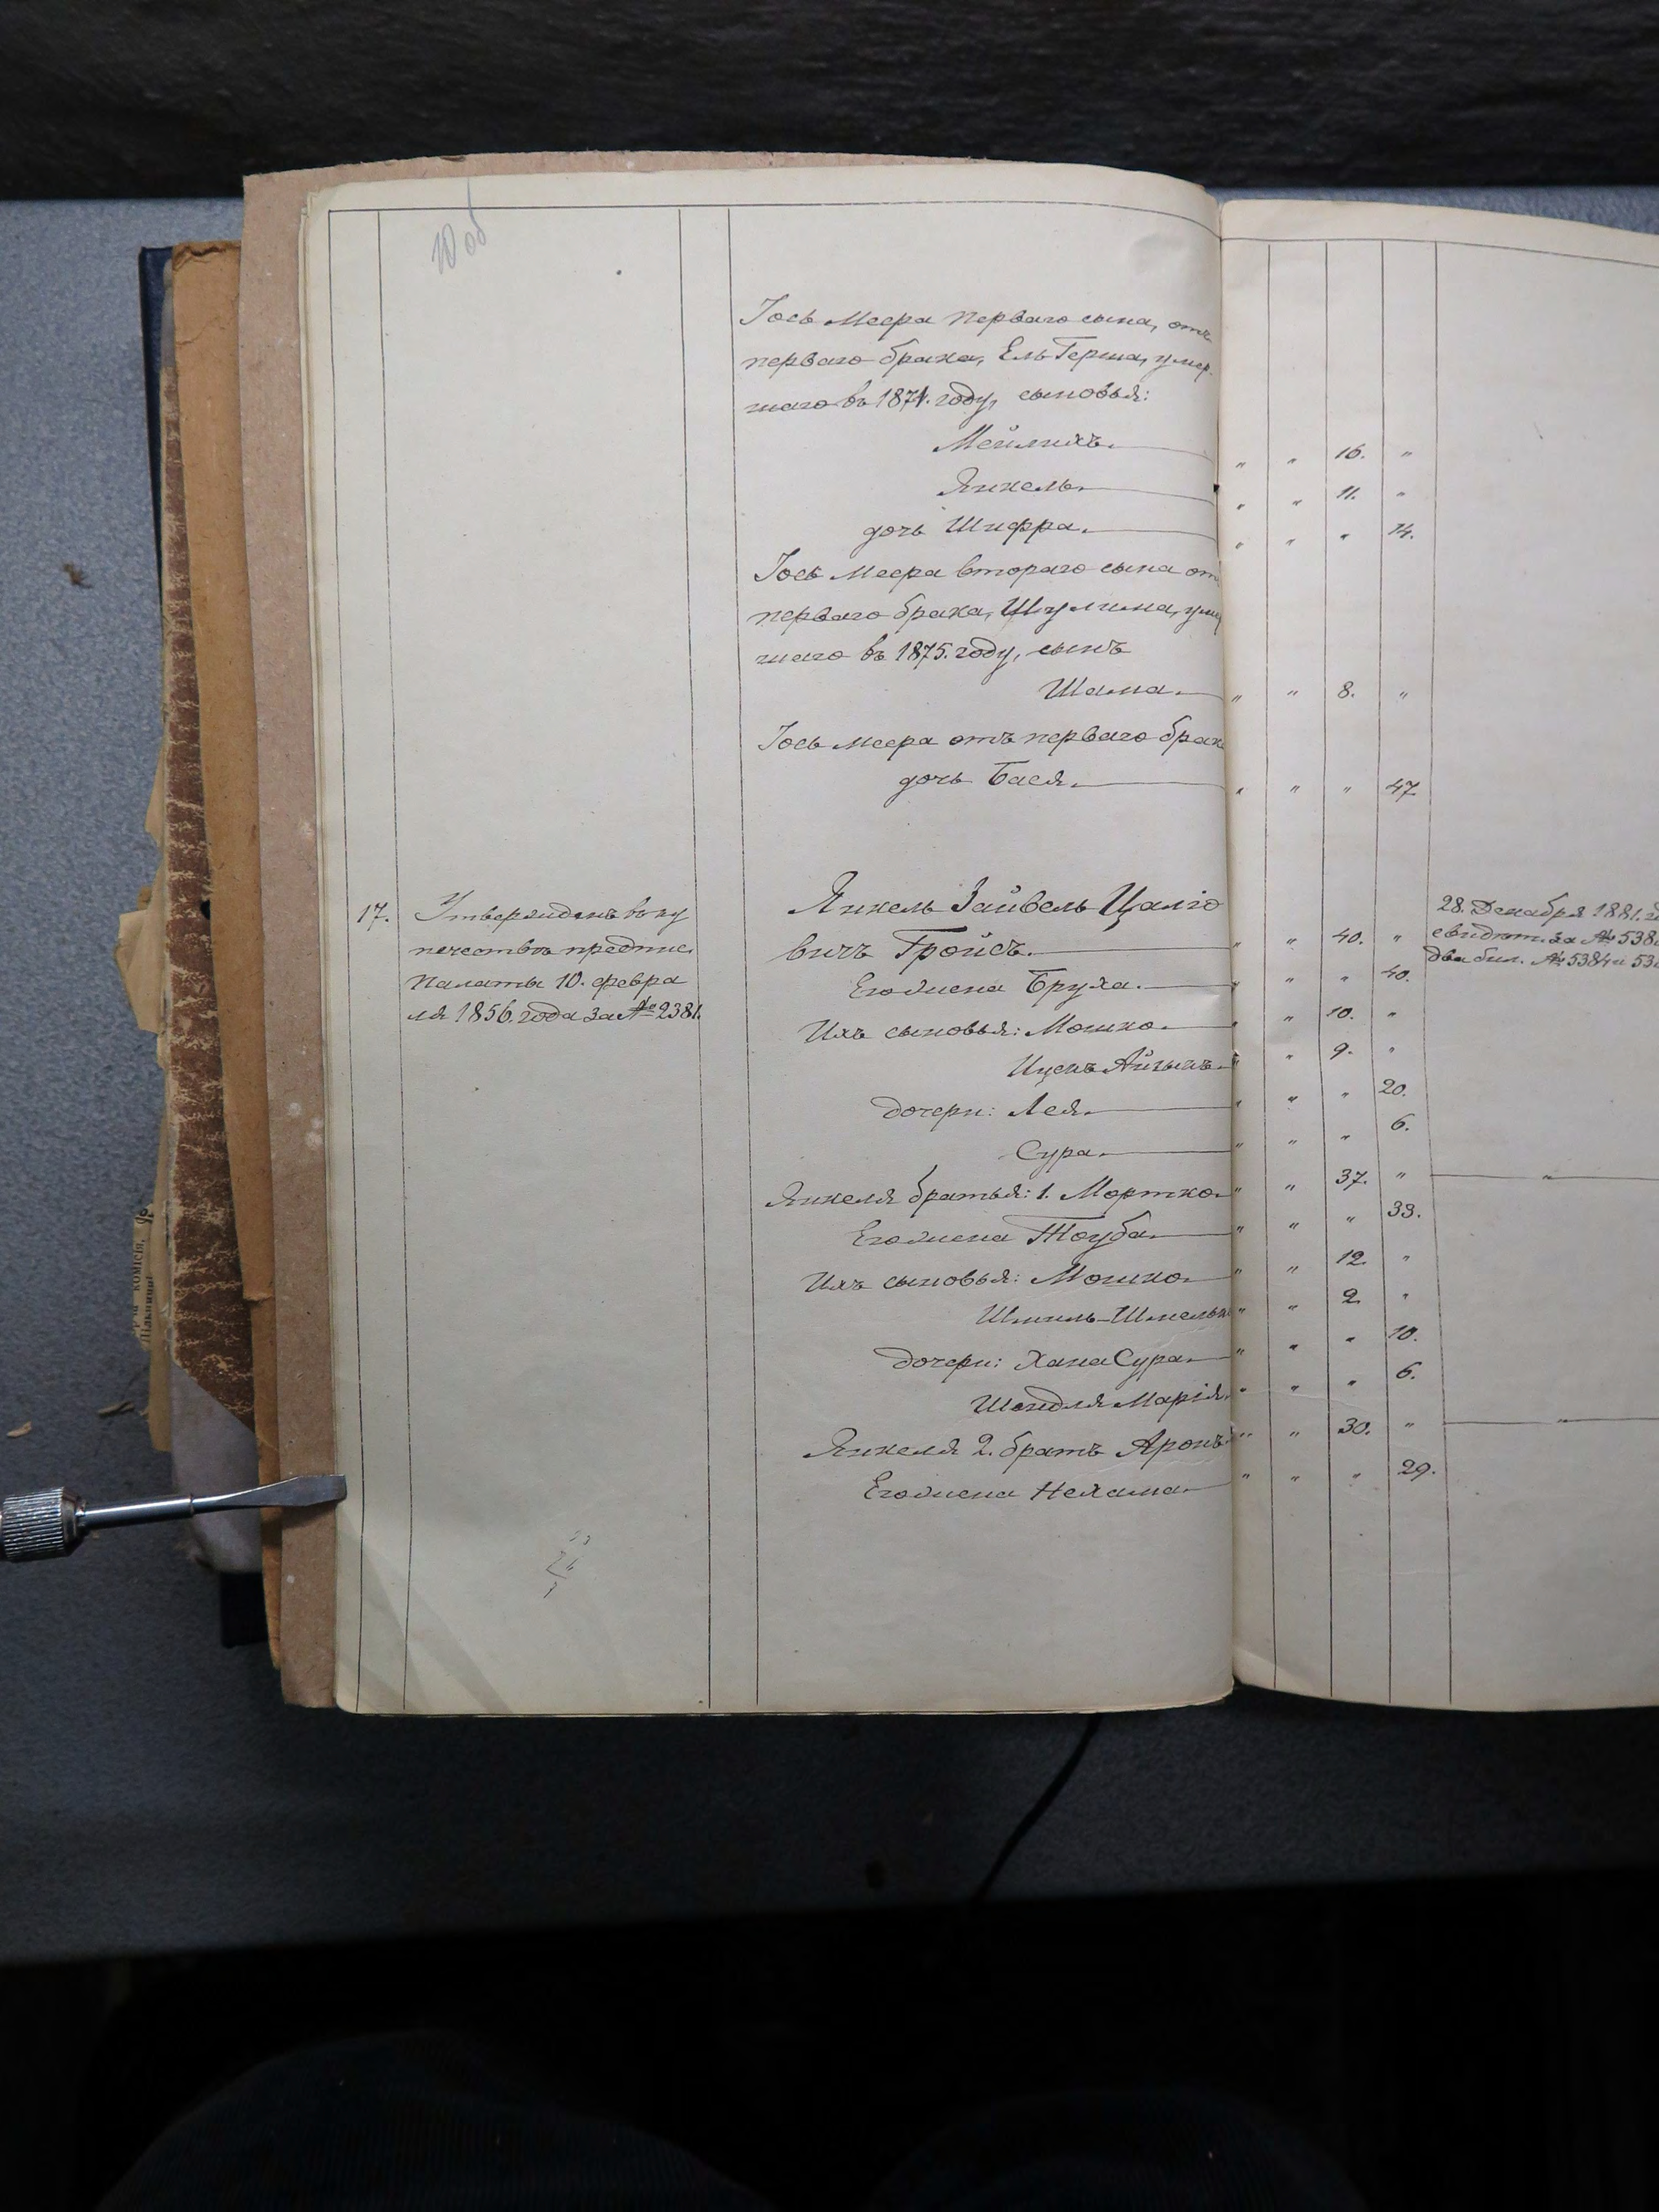 10 об
Iось Меера перваго сына, отъ
перваго брака, Ель Герша, умер-
шаго въ 1871. году, сыновья:
Мейлихъ. " " 16. "
Янкель. " " 11. "
дочь Шифра. " " " 14.
Iось Меера втораго сына от
перваго брака, Шулима, уме
шаго въ 1875. году, сынъ
Шама. " " 8. "
Iось Меера отъ перваго брак
дочь Бася. " " " 47.
17. Утвержденъ въ ку
печество предпис.
Палаты 10. февра
ля 1856. года за № 2381.
Янкель Зайвель Цалiо
вичъ Гройсъ. " " 40. "
Его жена Бруха. " " " 40.
Ихъ сыновья: Мошко. " " 10. "
Ицекъ Айзыкъ. " " 9. "
дочери: Лея. " " " 20.
Сура. " " " 6.
Янкеля братья: 1. Мортко. " " 37. " "
Его жена Тоуба. " " " 33.
Ихъ сыновья: Мошко. " " 12. "
Шмиль-Шмельк " " 2. "
дочери: Хана Сура. " " " 10.
Шейдля Марiя. " " " 6.
Янкеля 2. братъ Аронъ. " " 30. " "
Его жена Нехама. " " " 29.
28. Декабря 1881. г
свидѣт. за № 538
два бил. № 5384 и 53
комісія,